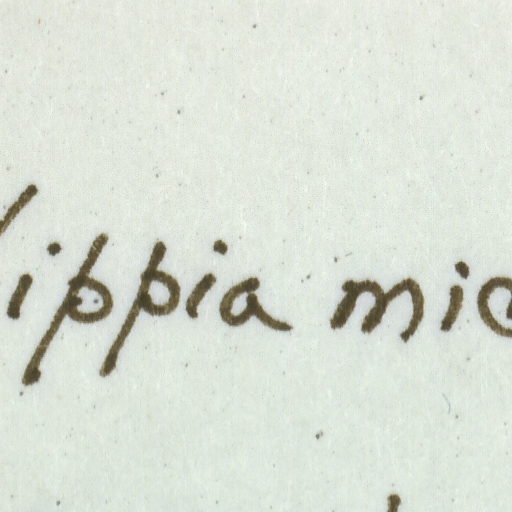 ippia mic